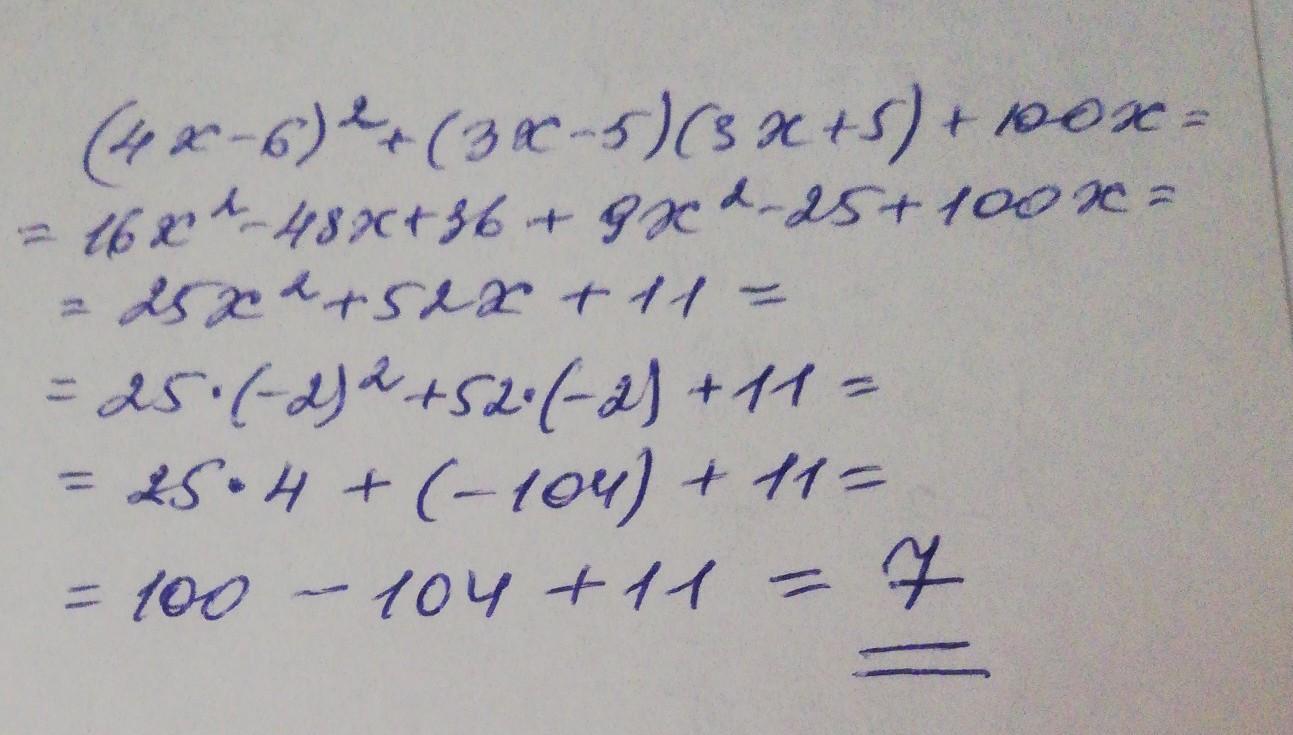 (4x-6)²+(3x-5)(3x+5)+100x=
=16x²-48x+36+9x²-25+100x=
=25x²+52x+11=
=25·(-2)²+52·(-2)+11=
=25·4+(-104)+11=
=100-104+11=7